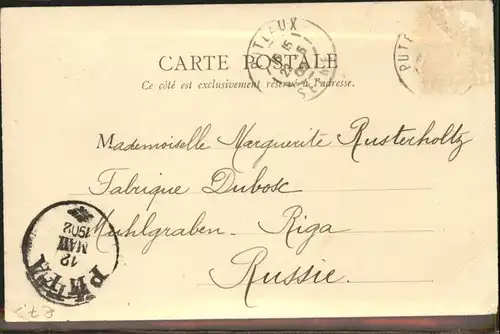 PUTEAUX
SEINE
PUTE
CARTE POSTALE
Ce côté est exclusivement réservé à l'adresse.
Mademoiselle Marguerite Rusterholtz
Fabrique Dubosc
Muhlgraben - Riga
Russie.
12
МАЙ
1902
РИГА